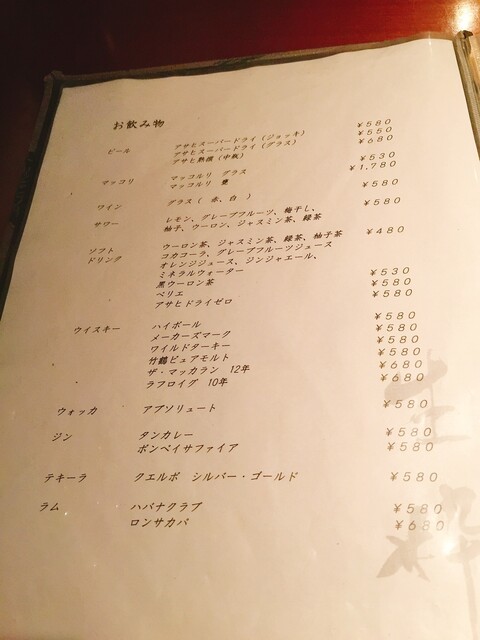 お飲み物
ビール アサヒスーパードライ(ジョッキ) ¥580
アサヒスーパードライ(グラス) ¥550
アサヒ熟撰(中瓶) ¥680
マッコリ マッコルリ グラス ¥530
マッコルリ 甕 ¥1,780
ワイン グラス( 赤、白 ) ¥580
サワー レモン、グレープフルーツ、梅干し、 ¥580
柚子、ウーロン、ジャスミン茶、緑茶
ソフト ウーロン茶、ジャスミン茶、緑茶、柚子茶 ¥480
ドリンク コカコーラ、グレープフルーツジュース
オレンジジュース、ジンジャエール、
ミネラルウォーター
黒ウーロン茶 ¥530
ペリエ ¥580
アサヒドライゼロ ¥580
ウイスキー ハイボール ¥580
メーカーズマーク ¥580
ワイルドターキー ¥580
竹鶴ピュアモルト ¥580
ザ・マッカラン 12年 ¥680
ラフロイグ 10年 ¥680
ウォッカ アブソリュート ¥580
ジン タンカレー ¥580
ボンベイサファイア ¥580
テキーラ クエルボ シルバー・ゴールド ¥580
ラム ハバナクラブ ¥580
ロンサカパ ¥680